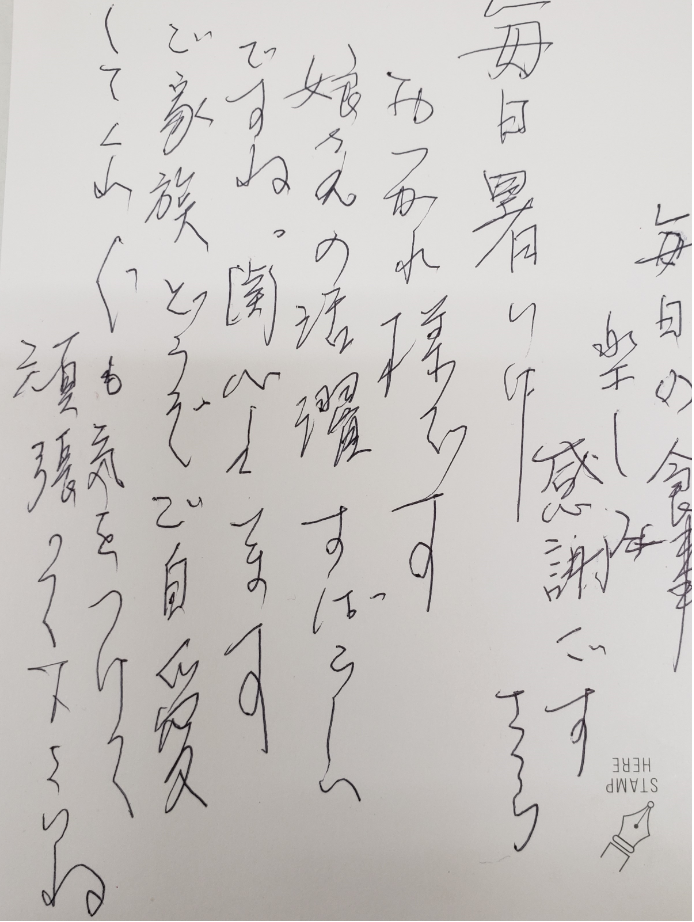 毎日の食事
楽しみ
感謝です
さくら
毎日暑い中
おつかれ様です
娘さんの活躍すばらしい
ですね。関心します
ご家族どうぞご自愛
してくれ〲も気をつけて
頑張って下さいね
STAMP
HERE